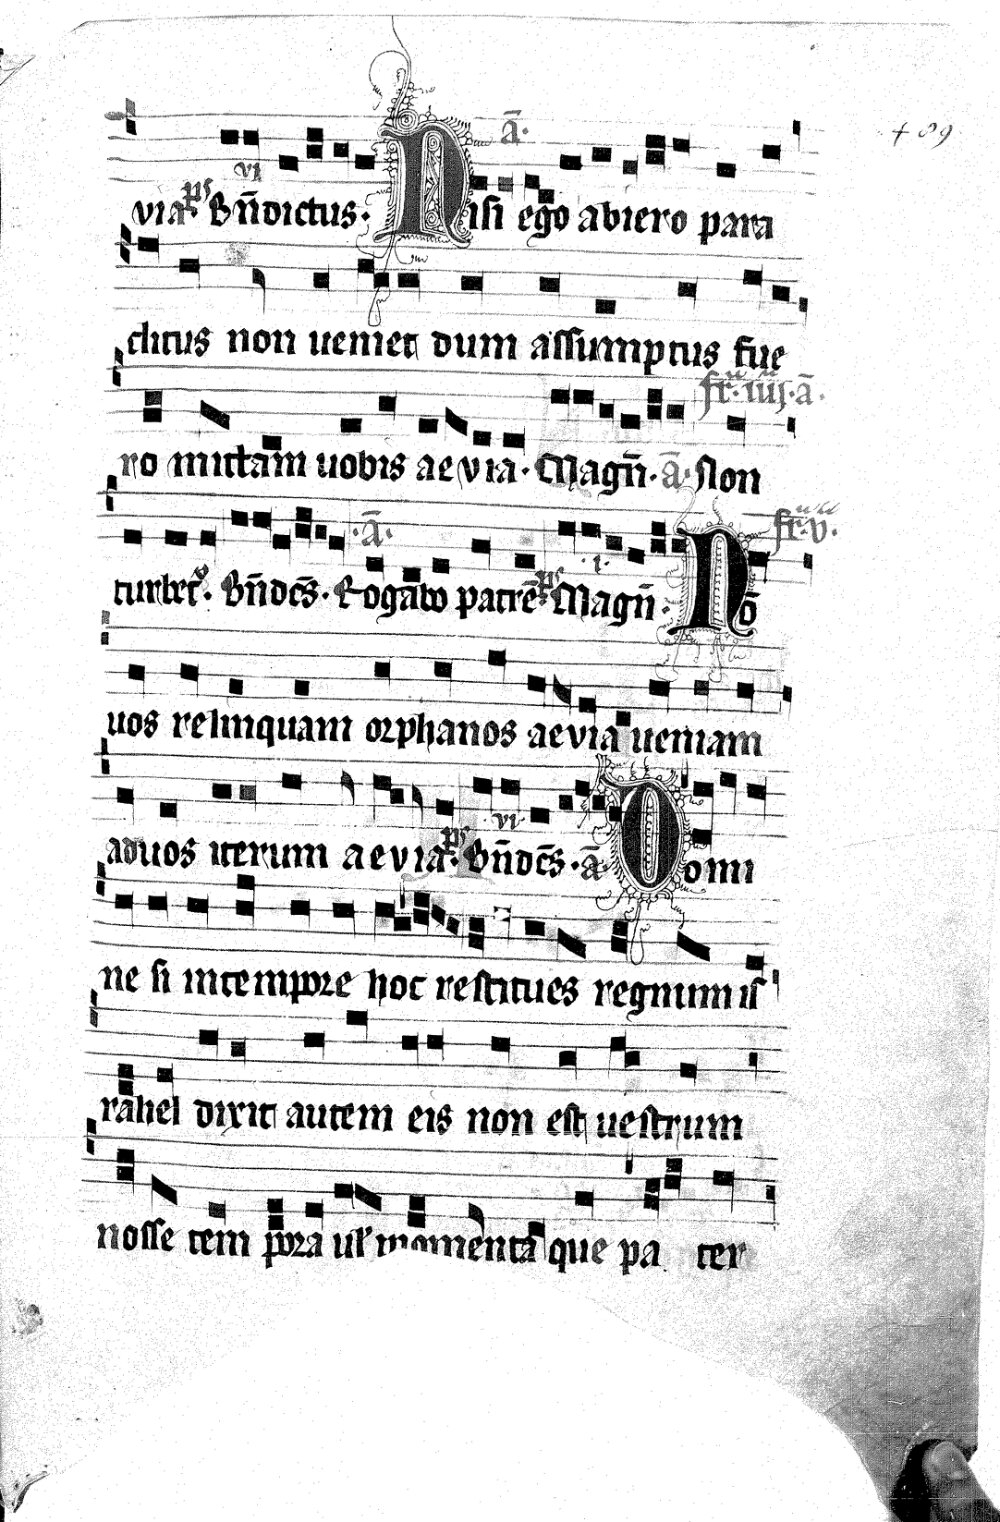 ā· 89
via ps Bn̄dictus· vi Nisi ego abiero para
clitus non veniet dum assumptus fue
fr· iiij· ā·
ro mittam uobis aevia· Magn̄· ā· Non
·ā· fr· v·
turbet· Bn̄dcs̄· Rogabo patrē ps Magn̄· i· Nō
uos relinquam orphanos aevia ueniam
aduos iterum aevia ps· vi Bn̄dcs̄· ā· Domi
ne si intempore hoc restitues regnum is
rahel dixit autem eis non est uestrum
nosse tempora ul' momenta que pa ter